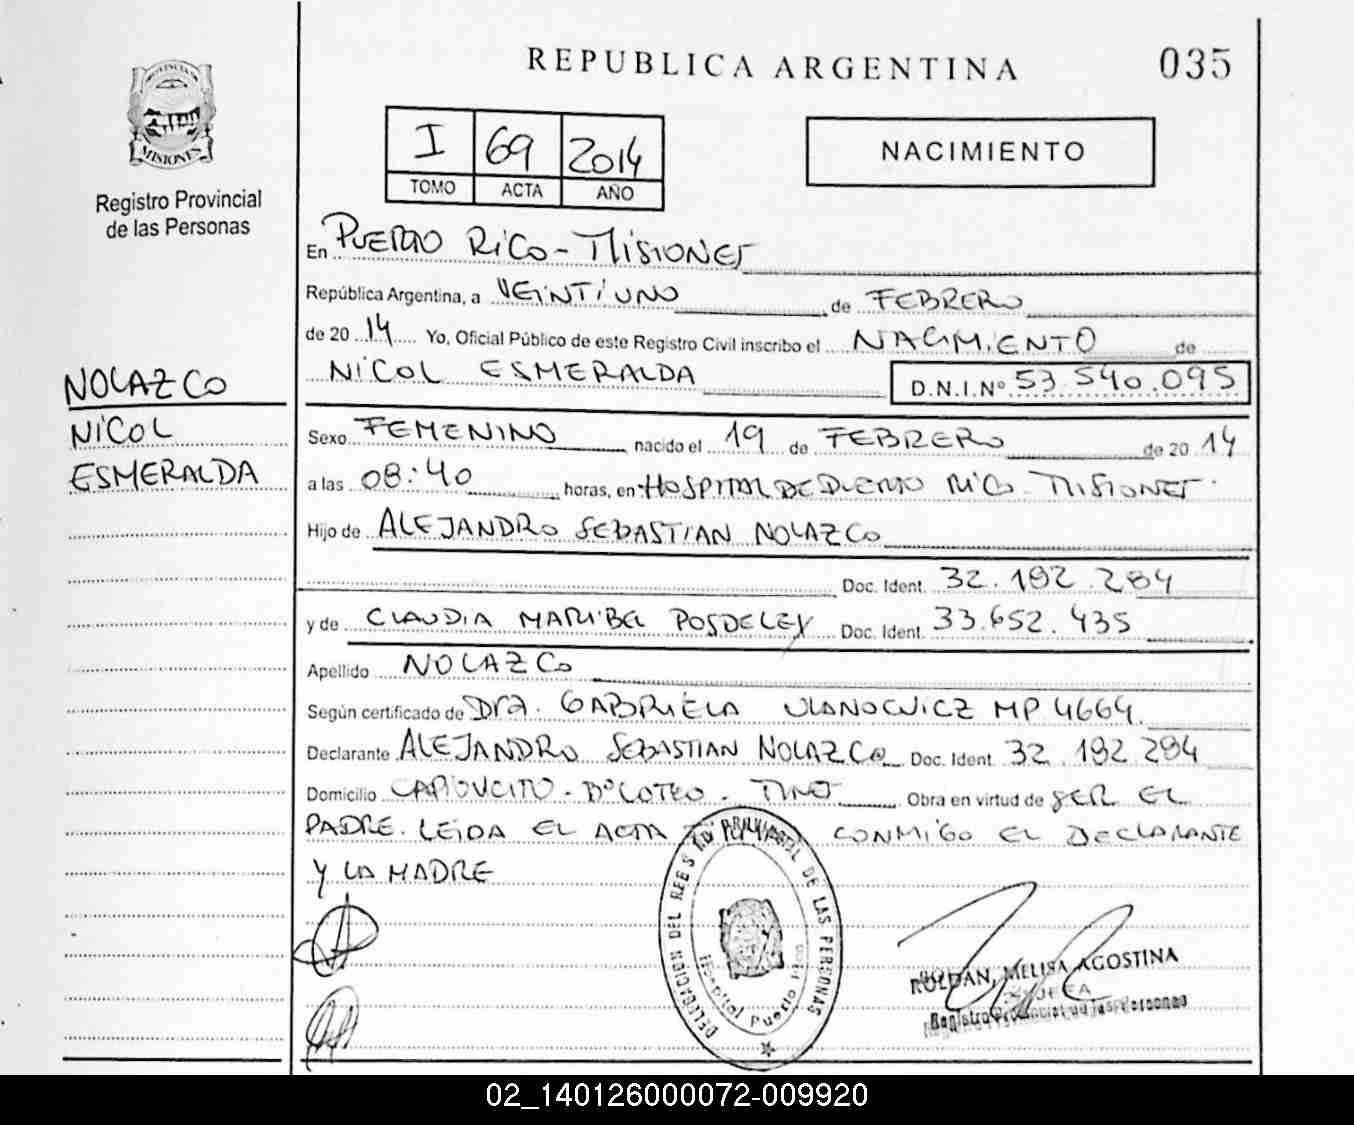 REPUBLICA ARGENTINA
035
PROVINCIA DE
MISIONES
Registro Provincial
de las Personas
I 69 2014
TOMO ACTA AÑO
NACIMIENTO
En PUERTO RICO - MISIONES
República Argentina, a VEINTIUNO de FEBRERO
de 20 14 Yo, Oficial Público de este Registro Civil inscribo el NACIMIENTO de
NICOL ESMERALDA D.N.I.Nº 53.540.095
NOLAZCO
NICOL
ESMERALDA
Sexo FEMENINO nacido el 19 de FEBRERO de 20 14
a las 08:40 horas, en HOSPITAL DE PUERTO RICO - MISIONES
Hijo de ALEJANDRO SEBASTIAN NOLAZCO
Doc. Ident. 32.192.284
y de CLAUDIA MARIBEL POSDELEY Doc. Ident. 33.652.435
Apellido NOLAZCO
Según certificado de DRA. GABRIELA MP 4664.
Declarante ALEJANDRO SEBASTIAN NOLAZCO Doc. Ident. 32.192.284
Domicilio CAPIOVICITO - Obra en virtud de SER EL
PADRE. LEIDA EL ACTA CONMIGO EL DECLARANTE
Y LA MADRE
DELEGACION DEL DE LAS PERSONAS
Hospital Puerto Rico
ROLDAN, MELISA AGOSTINA
JEFA
Registro Provincial de las Personas
02_140126000072-009920